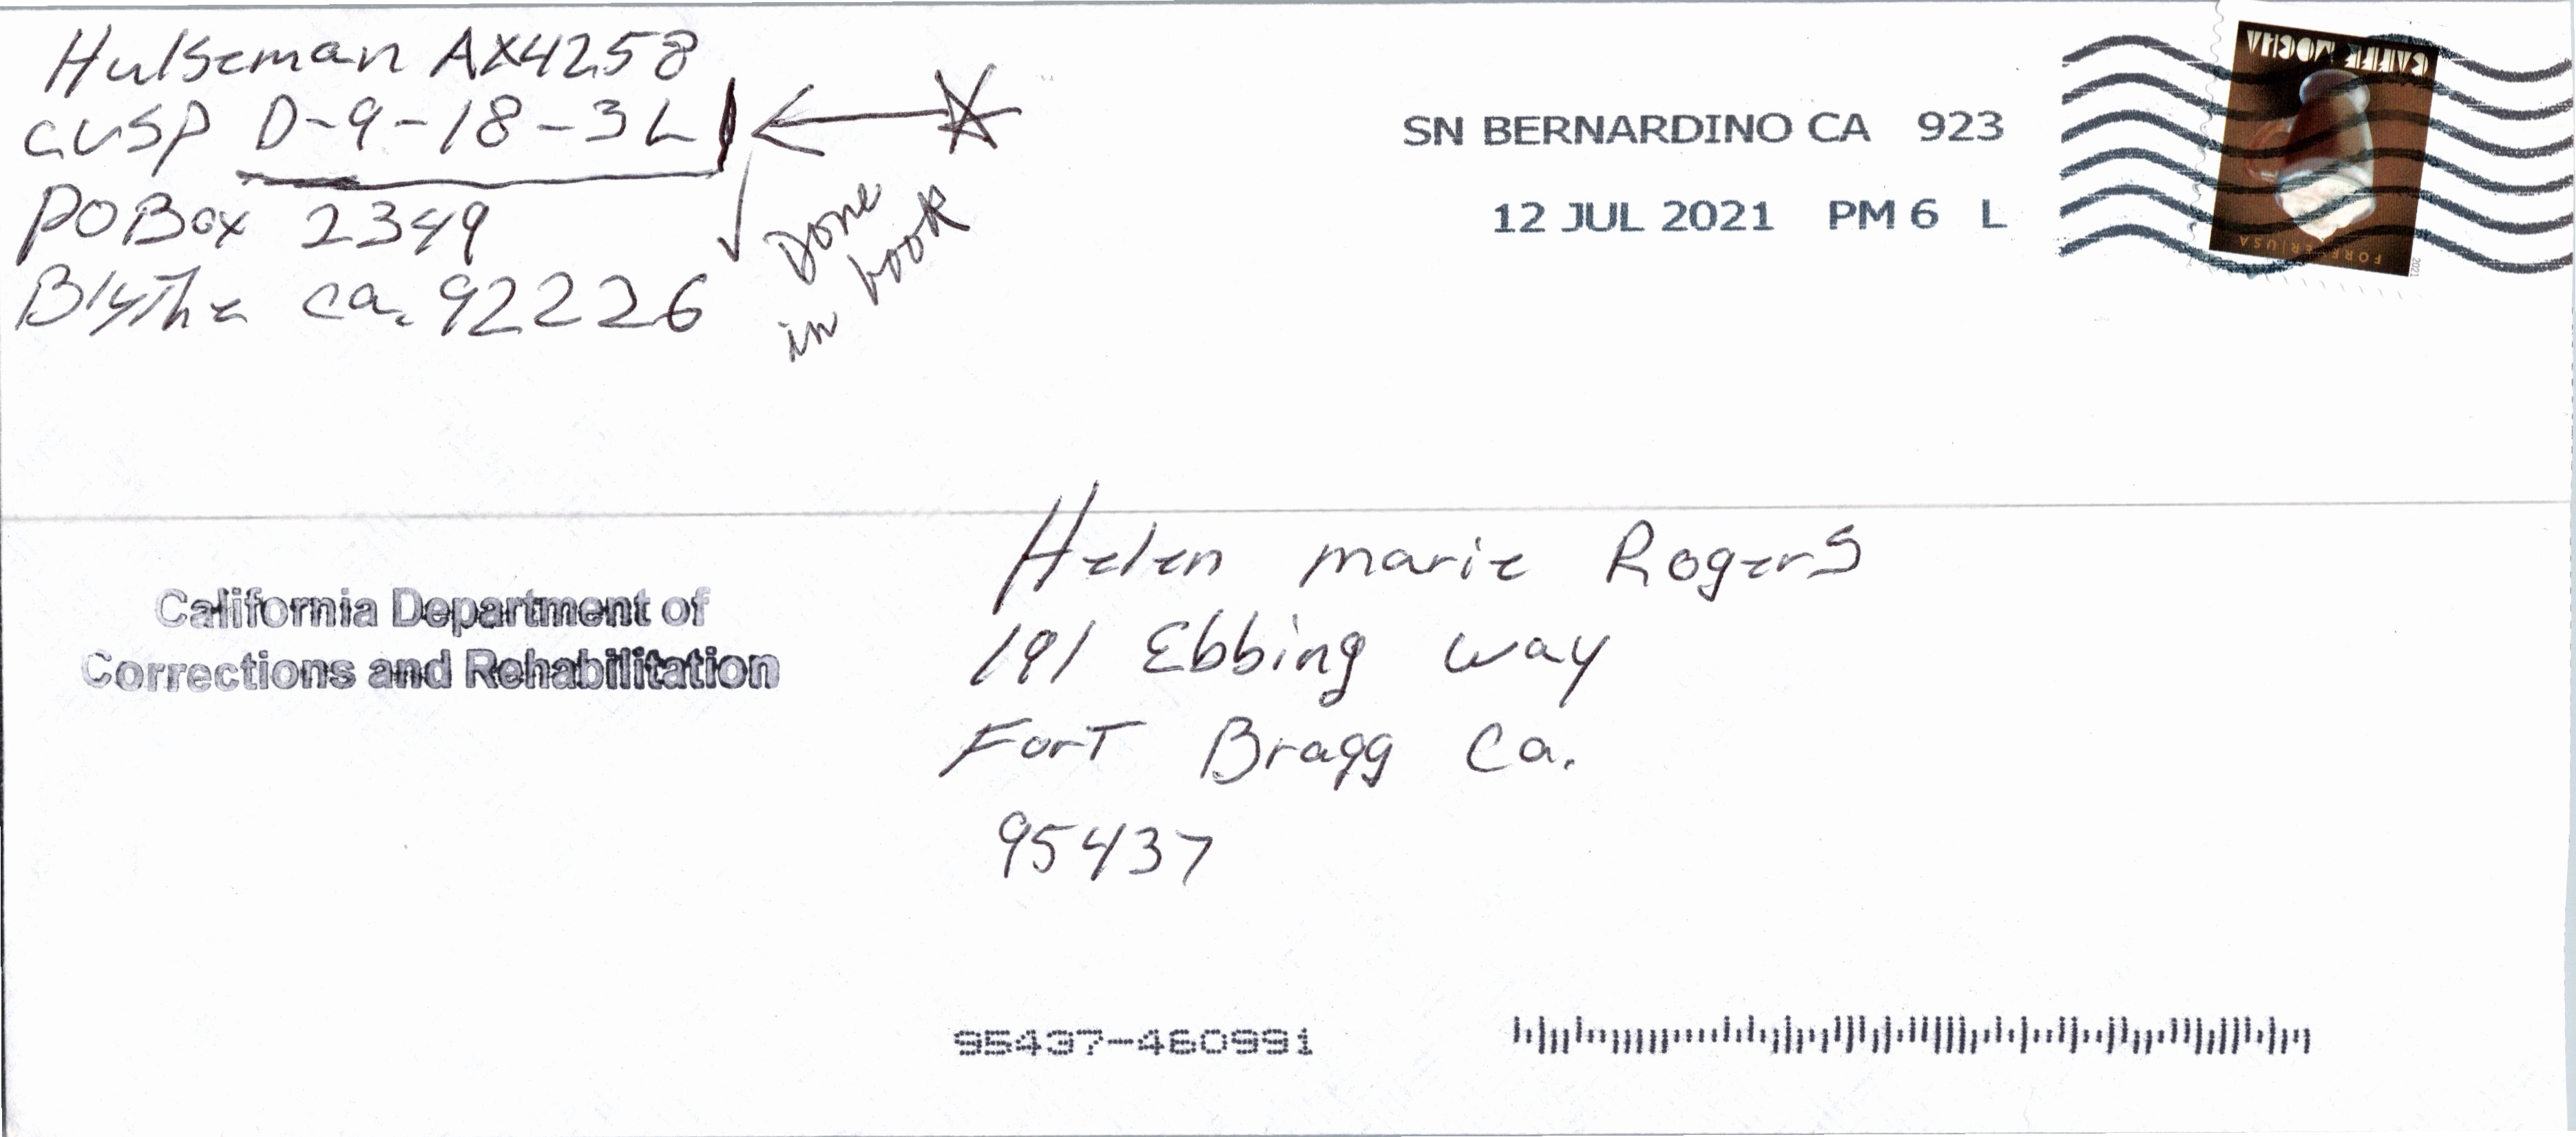 Hulseman AX4258
CVSP D-9-18-3L
PO Box 2349
Blythe ca. 92226
Done
in book
SN BERNARDINO CA 923
12 JUL 2021 PM 6 L
CAFFE MOCHA
FOREVER/USA
2021
California Department of
Corrections and Rehabilitation
Helen marie Rogers
191 Ebbing way
Fort Bragg Ca.
95437
95437-460991